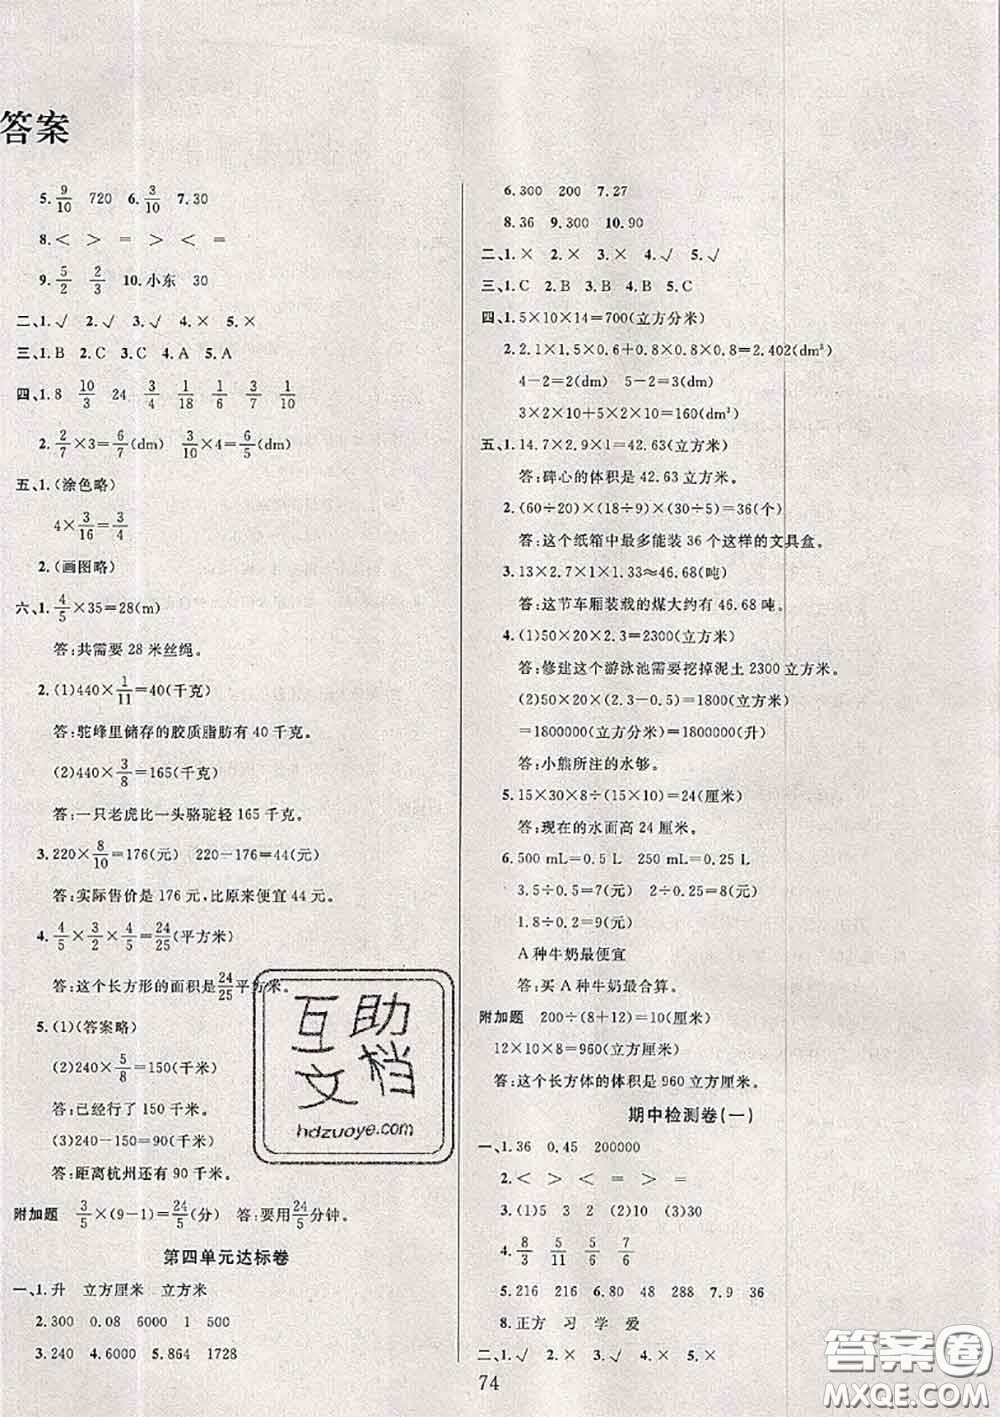 答案
5. 9/10 720 6. 3/10 7.30
8.< > = > < =
9. 5/2 2/3 10.小东 30
二、1.√ 2.√ 3.√ 4.× 5.×
三、1.B 2.C 3.C 4.A 5.A
四、1.8 10/3 24 3/4 1/18 1/6 3/7 1/10
2. 2/7×3=6/7(dm) 3/10×4=6/5(dm)
五、1.(涂色略)
4×3/16=3/4
2.(画图略)
六、1. 4/5×35=28(m)
答:共需要 28 米丝绳。
2.(1)440×1/11=40(千克)
答:驼峰里储存的胶质脂肪有 40 千克。
(2)440×3/8=165(千克)
答:一只老虎比一头骆驼轻 165 千克。
3.220×8/10=176(元) 220-176=44(元)
答:实际售价是 176 元,比原来便宜 44 元。
4. 4/5×3/2×4/5=24/25(平方米)
答:这个长方形的面积是24/25平方米。
5.(1)(答案略)
(2)240×5/8=150(千米)
答:已经行了 150 千米。
(3)240-150=90(千米)
答:距离杭州还有 90 千米。
附加题 3/5×(9-1)=24/5(分) 答:要用24/5分钟。
第四单元达标卷
一、1.升 立方厘米 立方米
2.300 0.08 6000 1 500
3.240 4.6000 5.864 1728
6.300 200 7.27
8.36 9.300 10.90
二、1.× 2.× 3.× 4.√ 5.√
三、1.C 2.B 3.B 4.B 5.C
四、1.5×10×14=700(立方分米)
2.2.1×1.5×0.6+0.8×0.8×0.8=2.402(dm³)
4-2=2(dm) 5-2=3(dm)
3×2×10+5×2×10=160(dm³)
五、1.14.7×2.9×1=42.63(立方米)
答:碑心的体积是 42.63 立方米。
2.(60÷20)×(18÷9)×(30÷5)=36(个)
答:这个纸箱中最多能装 36 个这样的文具盒。
3.13×2.7×1×1.33≈46.68(吨)
答:这节车厢装载的煤大约有 46.68 吨。
4.(1)50×20×2.3=2300(立方米)
答:修建这个游泳池需要挖掉泥土 2300 立方米。
(2)50×20×(2.3-0.5)=1800(立方米)
=1800000(立方分米)=1800000(升)
答:小熊所注的水够。
5.15×30×8÷(15×10)=24(厘米)
答:现在的水面高 24 厘米。
6.500 mL=0.5 L 250 mL=0.25 L
3.5÷0.5=7(元) 2÷0.25=8(元)
1.8÷0.2=9(元)
A 种牛奶最便宜
答:买 A 种牛奶最合算。
附加题 200÷(8+12)=10(厘米)
12×10×8=960(立方厘米)
答:这个长方体的体积是 960 立方厘米。
期中检测卷(一)
一、1.36 0.45 200000
2.< < > > = =
3.(1)5 3/2 (2)10 (3)2
4. 8/3 5/11 5/6 7/6
5.216 216 6.80 48 288 7.9 36
8.正方 习 学 爱
二、1.√ 2.√ 3.× 4.√ 5.×
74
互助
文档
hdzuoye.com
答案圈
MXQE.COM